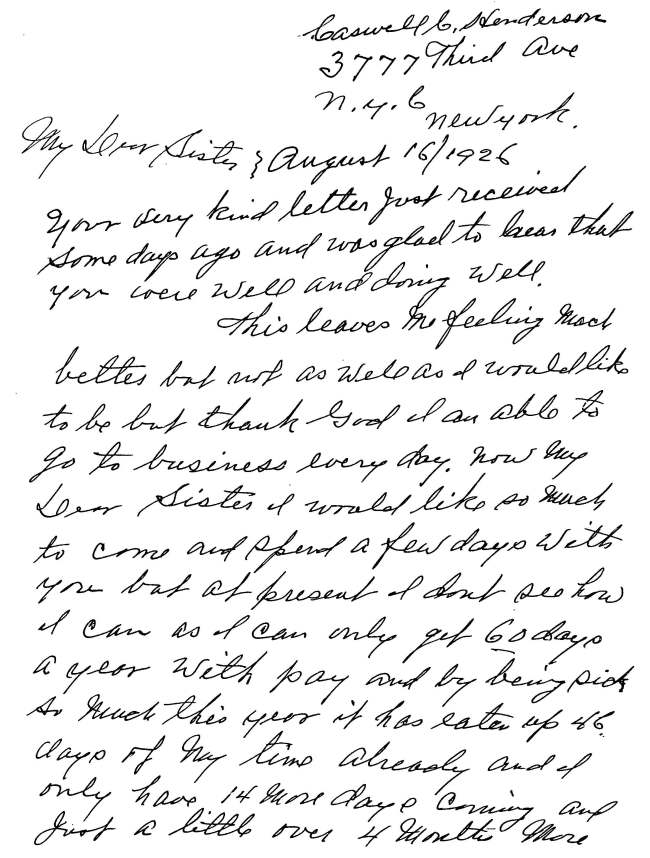 Caswell C. Henderson
3777 Third Ave
N.Y.C
New York.
My Dear Sister; August 16/1926
Your very kind letter just received
some days ago and was glad to hear that
you were well and doing well.
This leaves me feeling much
better but not as well as I would like
to be but thank God I am able to
go to business every day. Now My
Dear Sister I would like so much
to come and spend a few days with
you but at present I dont see how
I can as I can only get 60 days
a year with pay and by being sick
so much this year it has eaten up 46
days of My time already and I
only have 14 more days coming and
just a little over 4 Months More